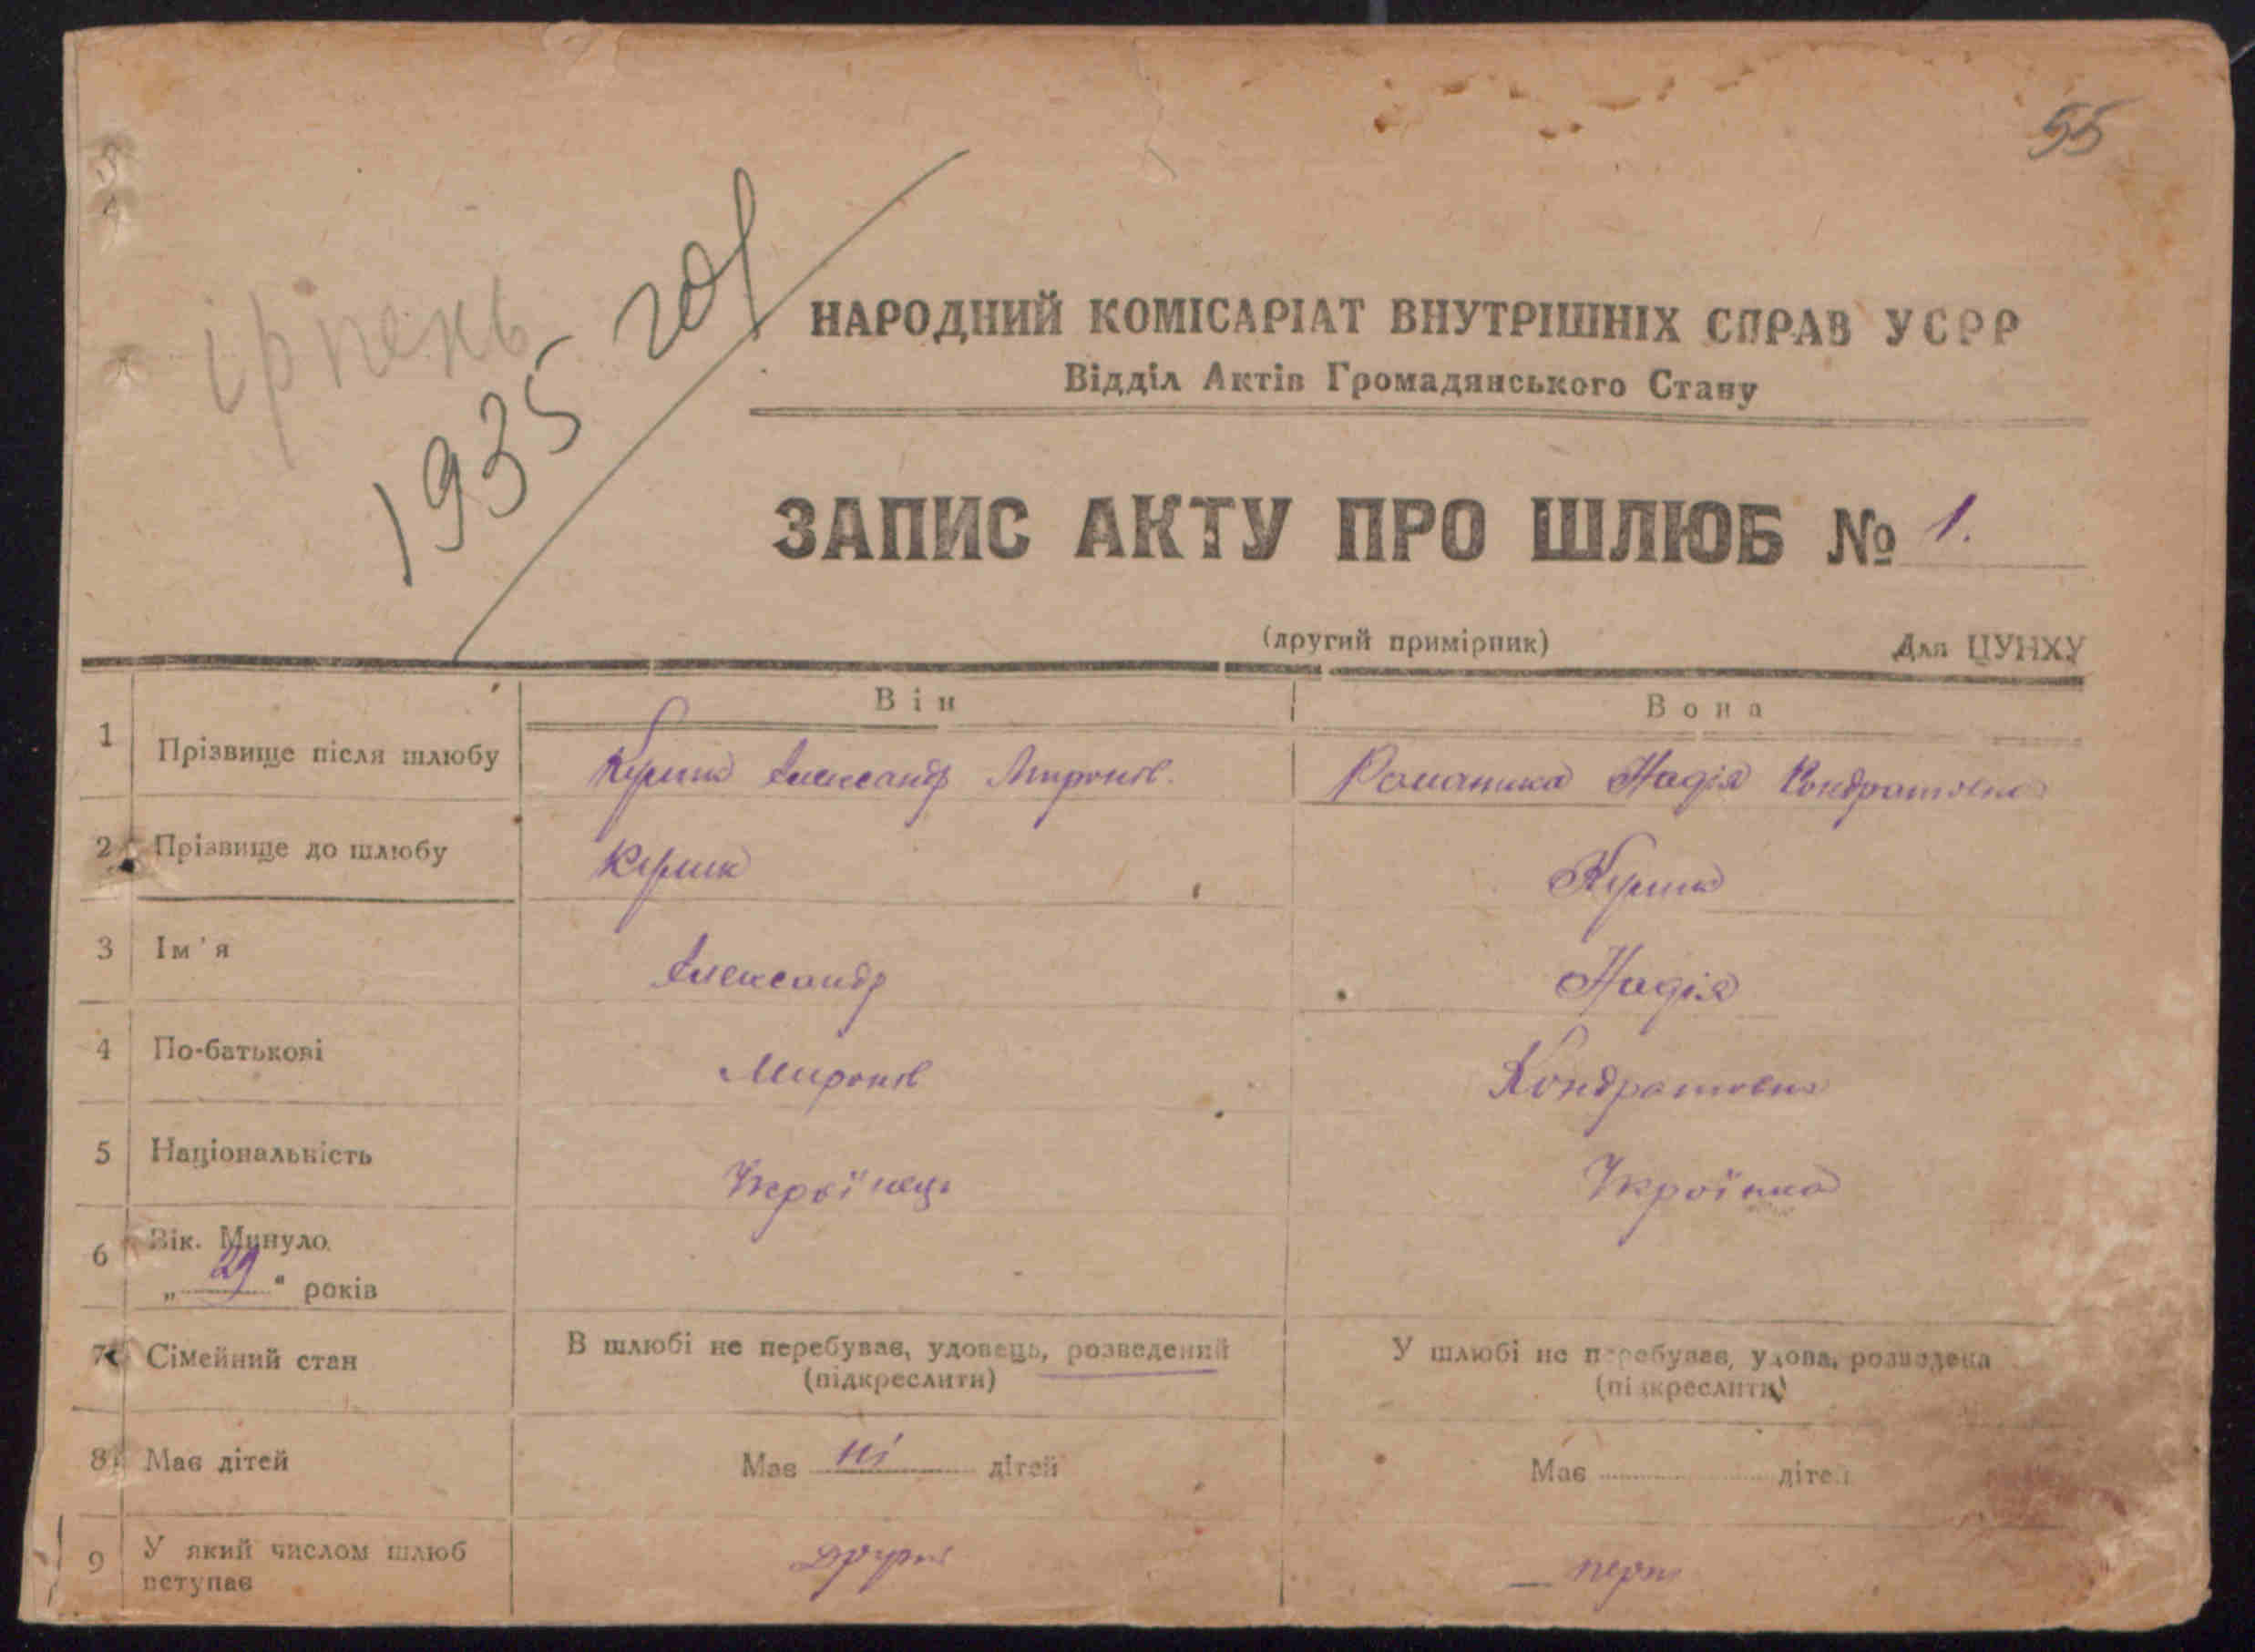 55
ірпень
1935 год
НАРОДНИЙ КОМІСАРІАТ ВНУТРІШНІХ СПРАВ УСРР
Відділ Актів Громадянського Стану
ЗАПИС АКТУ ПРО ШЛЮБ № 1.
(другий примірник) Для ЦУНХУ
Він Вона
1 Прізвище після шлюбу Александр Миронів. Надія Кондратовна
2 Прізвище до шлюбу
3 Ім'я Александр Надія
4 По-батькові Миронів Кондратовна
5 Національність Українець Українка
6 Вік. Минуло
„29“ років
7 Сімейний стан В шлюбі не перебуває, удовець, розведений У шлюбі не перебуває, удова, розведена
(підкреслити) (підкреслити)
8 Має дітей Має ні дітей Має дітей
9 У який числом шлюб
вступає другий